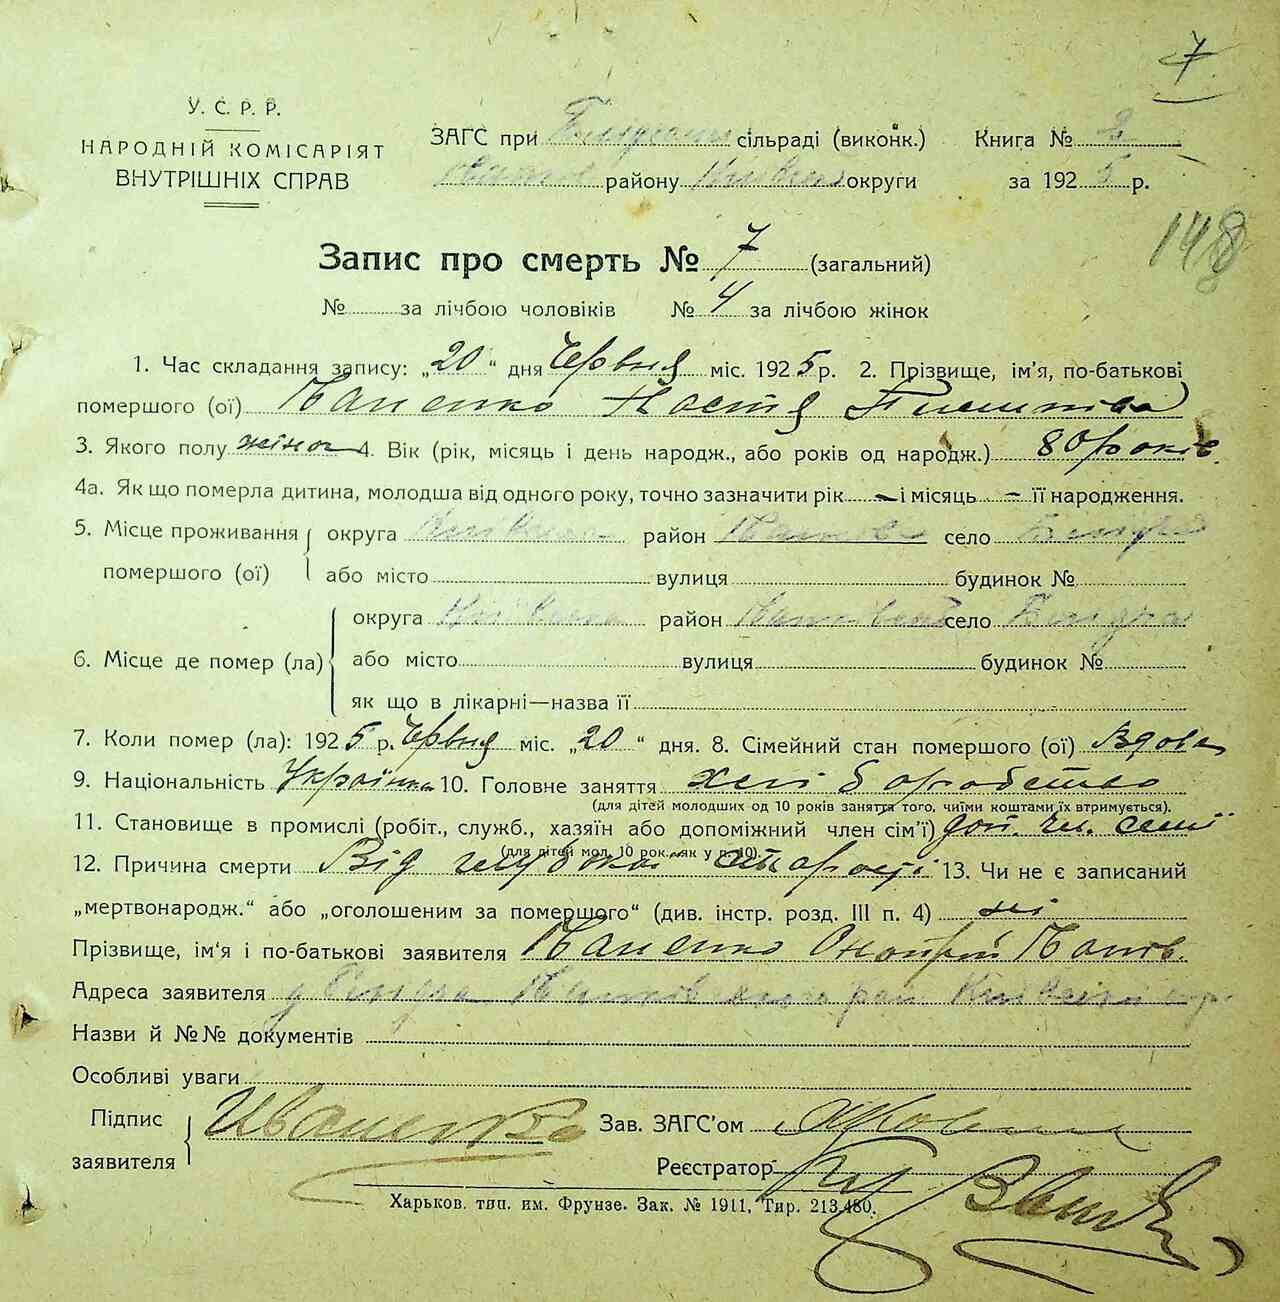 7
У. С. Р. Р.
НАРОДНІЙ КОМІСАРІЯТ
ВНУТРІШНІХ СПРАВ
ЗАГС при сільраді (виконк.)
району округи
Книга № 2
за 1925 р.
148
Запис про смерть № 7 (загальний)
№ за лічбою чоловіків № 4 за лічбою жінок
1. Час складання запису: „20“ дня Червня міс. 1925 р. 2. Прізвище, ім'я, по-батькові
помершого (ої) Настя
3. Якого полу жіноч 4. Вік (рік, місяць і день народж., або років од народж.) 80 років
4а. Як що померла дитина, молодша від одного року, точно зазначити рік – і місяць – її народження.
5. Місце проживання помершого (ої) округа район село
або місто вулиця будинок №
6. Місце де помер (ла) округа район село
або місто вулиця будинок №
як що в лікарні—назва її
7. Коли помер (ла): 1925 р. Червня міс. „20“ дня. 8. Сімейний стан помершого (ої) Вдова
9. Національність Українка 10. Головне заняття хліборобство
(для дітей молодших од 10 років заняття того, чиїми коштами їх втримується).
11. Становище в промислі (робіт., служб., хазяїн або допоміжний член сім'ї) доп. чл. семії
(для дітей мол. 10 рок. як у п. 10).
12. Причина смерти Від глубокої старості 13. Чи не є записаний
„мертвонародж.“ або „оголошеним за помершого“ (див. інстр. розд. III п. 4) ні
Прізвище, ім'я і по-батькові заявителя Онопрій
Адреса заявителя
Назви й №№ документів
Особливі уваги
Підпис заявителя Зав. ЗАГС'ом
Реєстратор
Харьков. тип. им. Фрунзе. Зак. № 1911. Тир. 213.480.